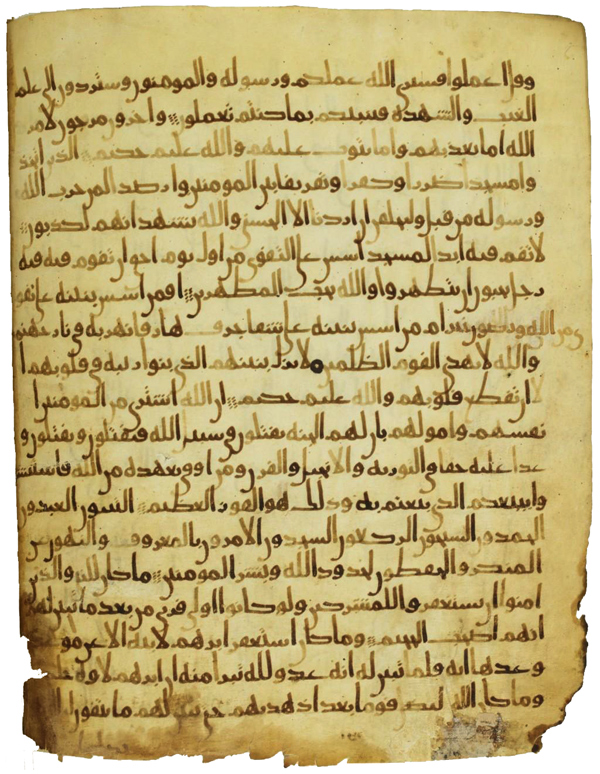 وقل اعملوا فسيرى الله عملكم ورسوله والمومنون وستردون الى علم
الغيب والشهدة فينبئكم بما كنتم تعملون واخرون مرجون لامر
الله اما يعذبهم واما يتوب عليهم والله عليم حكيم الذين اتخذ
وا مسجدا ضررا وكفرا وتفريقا بين المومنين وارصدا لمن حرب الله
ورسوله من قبل وليحلفن ان اردنا الا الحسنى والله يشهد انهم لكذبون
لا تقم فيه ابدا لمسجد اسس على التقوى من اول يوم احق ان تقوم فيه فيه
رجل يحبون ان يتطهروا والله يحب المطهرين افمن اسس بنينه على تقو
ى من الله ورضون خير ام من اسس بنينه على شفا جرف هار فانهر به في نار جهنم
والله لا يهدي القوم الظلمين لا يزل بنينهم الذي بنوا ريبة في قلوبهم ا
لا ان تقطع قلوبهم والله عليم حكيم ان الله اشترى من المومنين ا
نفسهم وامولهم بان لهم الجنة يقتلون في سبيل الله فيقتلون ويقتلون و
عدا عليه حقا في التورية والانجيل والقرن ومن اوفى بعهده من الله فاستبشر
وا ببيعكم الذي بيعتم به وذلك هو الفوز العظيم التئبون العبدون
الحمدون السئحون الركعون السجدون الامرون بالمعروف والنهون عن
المنكر والحفظون لحدود الله وبشر المومنين ما كان للنبي والذين
امنوا ان يستغفروا للمشركين ولو كانوا اولي قربى من بعد ما تبين لهم
انهم اصحب الجحيم وما كان استغفر ابرهيم لابيه الا عن موعدة
وعدها اياه فلما تبين له انه عدو لله تبرا منه ان ابرهيم لاوه
وما كان الله ليضل قوما بعد اذ هديهم حتى يبين لهم ما يتقون